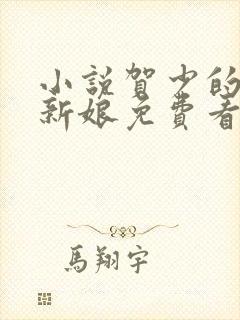 小説賀少的
新娘免費看
馬翔宇